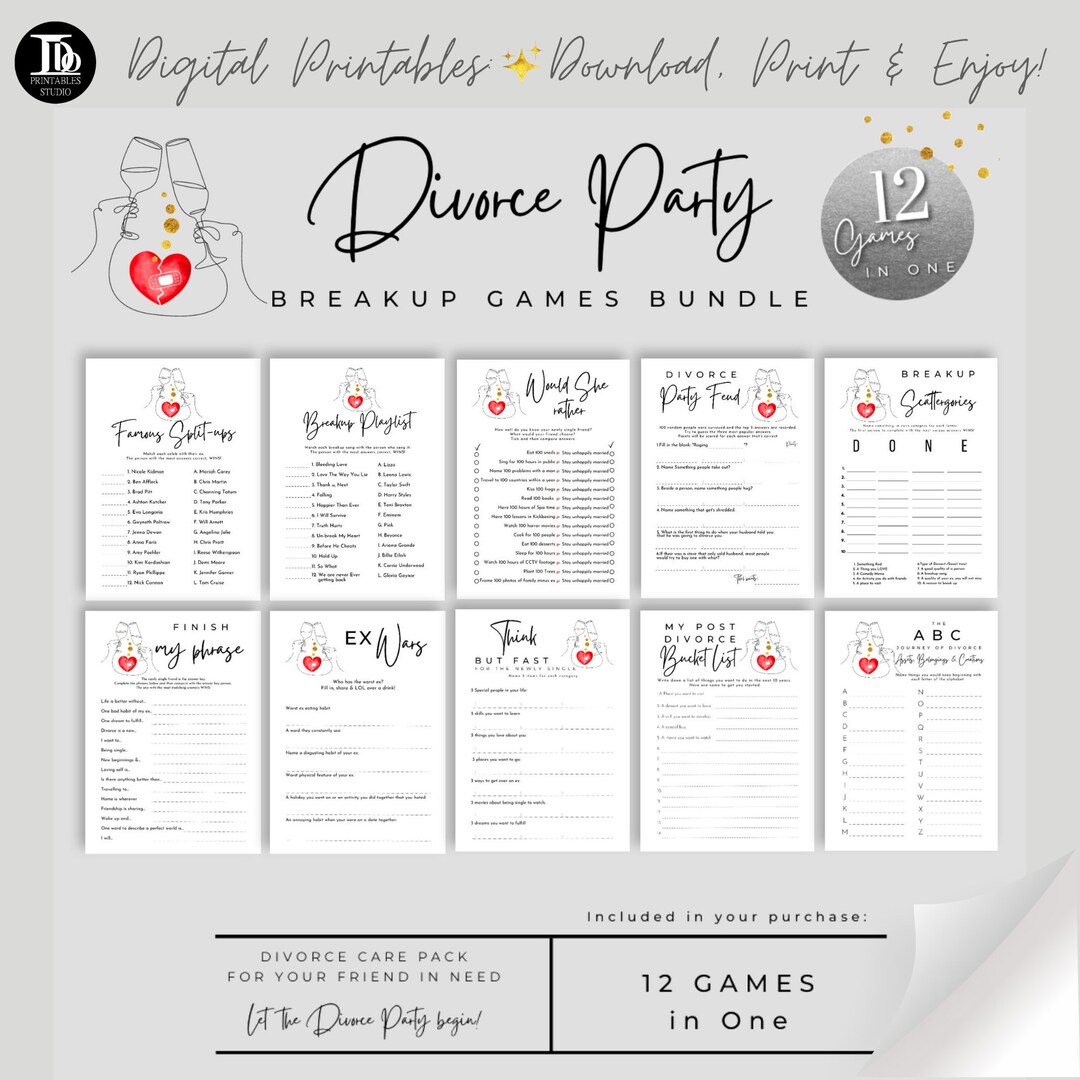 PRINTABLES
STUDIO
Digital Printables: Download, Print & Enjoy!
Divorce Party
BREAKUP GAMES BUNDLE
12
Games
IN ONE
Famous Split-ups
Match each celeb with their ex.
The person with the most answers correct, WINS!
1. Nicole Kidman
2. Ben Affleck
3. Brad Pitt
4. Ashton Kutcher
5. Eva Longoria
6. Gwyneth Paltrow
7. Jenna Dewan
8. Anna Faris
9. Amy Poehler
10. Kim Kardashian
11. Ryan Phillippe
12. Nick Cannon
A. Mariah Carey
B. Chris Martin
C. Channing Tatum
D. Tony Parker
E. Kris Humphries
F. Will Arnett
G. Angelina Jolie
H. Chris Pratt
I. Reese Witherspoon
J. Demi Moore
K. Jennifer Garner
L. Tom Cruise
Breakup Playlist
Match each breakup song with the person who sang it.
The person with the most answers correct, WINS!
1. Bleeding Love
2. Love The Way You Lie
3. Thank u, Next
4. Falling
5. Happier Than Ever
6. I Will Survive
7. Truth Hurts
8. Un-break My Heart
9. Before He Cheats
10. Hold Up
11. So What
12. We are never Ever
getting back
A. Lizzo
B. Leona Lewis
C. Taylor Swift
D. Harry Styles
E. Toni Braxton
F. Eminem
G. Pink
H. Beyonce
I. Ariana Grande
J. Billie Eilish
K. Carrie Underwood
L. Gloria Gaynor
Would She
rather
How well do you know your newly single friend?
What would your friend choose?
Tick and then compare answers.
Eat 100 snails or Stay unhappily married
Sing for 100 hours in public or Stay unhappily married
Name 100 problems with a man or Stay unhappily married
Travel to 100 countries within a year or Stay unhappily married
Kiss 100 frogs or Stay unhappily married
Read 100 books or Stay unhappily married
Have 100 hours of Spa time or Stay unhappily married
Have 100 lessons in Kickboxing or Stay unhappily married
Watch 100 horror movies or Stay unhappily married
Cook for 100 people or Stay unhappily married
Eat 100 desserts or Stay unhappily married
Sleep for 100 hours or Stay unhappily married
Watch 100 hours of CCTV footage or Stay unhappily married
Plant 100 Trees or Stay unhappily married
Frame 100 photos of family minus ex or Stay unhappily married
DIVORCE
Party Feud
100 random people were surveyed and the top 3 answers are recorded.
Try to guess the three most popular answers.
Points will be scored for each answer that's correct
1.Fill in the blank "Raging "
Points
2. Name Something people take out?
3. Beside a person, name something people hug?
4. Name something that gets shredded.
5. What is the first thing to do when your husband told you
that he was going to divorce you.
6.If their was a store that only sold husband, most people
would try to buy one with what?
BREAKUP
Scattergories
Name something, a noun category for each letter.
The first person to complete with the most correct answers WINS!
D O N E
1.
2.
3.
4.
5.
6.
7.
8.
9.
10.
1. Something Red
2. A Thing you LOVE
3. A Comedy Movie
4. An Activity you do with friends
5. A place to visit
6.Type of Dessert (Sweet tooth)
7. A good quality of a person
8. A breakup song
9. A quality of your ex you will not miss
10. A reason to break up
FINISH
my phrase
The newly single friend is the answer key.
Complete the phrases below and then compare with the answer key person.
The one with the most matching answers WINS!
Life is better without..
One bad habit of my ex..
One dream to fulfill..
Divorce is a new..
I want to..
Being single..
New beginnings &..
Loving self is..
Is there anything better than..
Travelling to..
Home is wherever
Friendship is sharing..
Wake up and..
One word to describe a perfect world is..
I will..
EX Wars
Who has the worst ex?
Fill in, share & LOL over a drink!
Worst ex eating habit:
A word they constantly use:
Name a disgusting habit of your ex:
Worst physical feature of your ex:
A holiday you went on or an activity you did together that you hated:
An annoying habit when your were on a date together:
Think
BUT FAST
FOR THE NEWLY SINGLE
Name 3 items for each category
3 Special people in your life:
3 skills you want to learn:
3 things you love about you:
3 places you want to go:
3 ways to get over an ex:
3 movies about being single to watch:
3 dreams you want to fulfill:
MY POST
DIVORCE
Bucket List
Write down a list of things you want to do in the next 10 years.
Here are some to get you started.
1. A Place you want to eat:
2. A dessert you want to bake:
3. A skill you want to develop:
THE
ABC
JOURNEY OF DIVORCE
Assets, Belongings & Creations
Name things you would keep beginning with
each letter of the alphabet
A
B
C
D
E
F
G
H
I
J
K
L
M
N
O
P
Q
R
S
T
U
V
W
X
Y
Z
Included in your purchase:
DIVORCE CARE PACK
FOR YOUR FRIEND IN NEED
Let the Divorce Party begin!
12 GAMES
in One